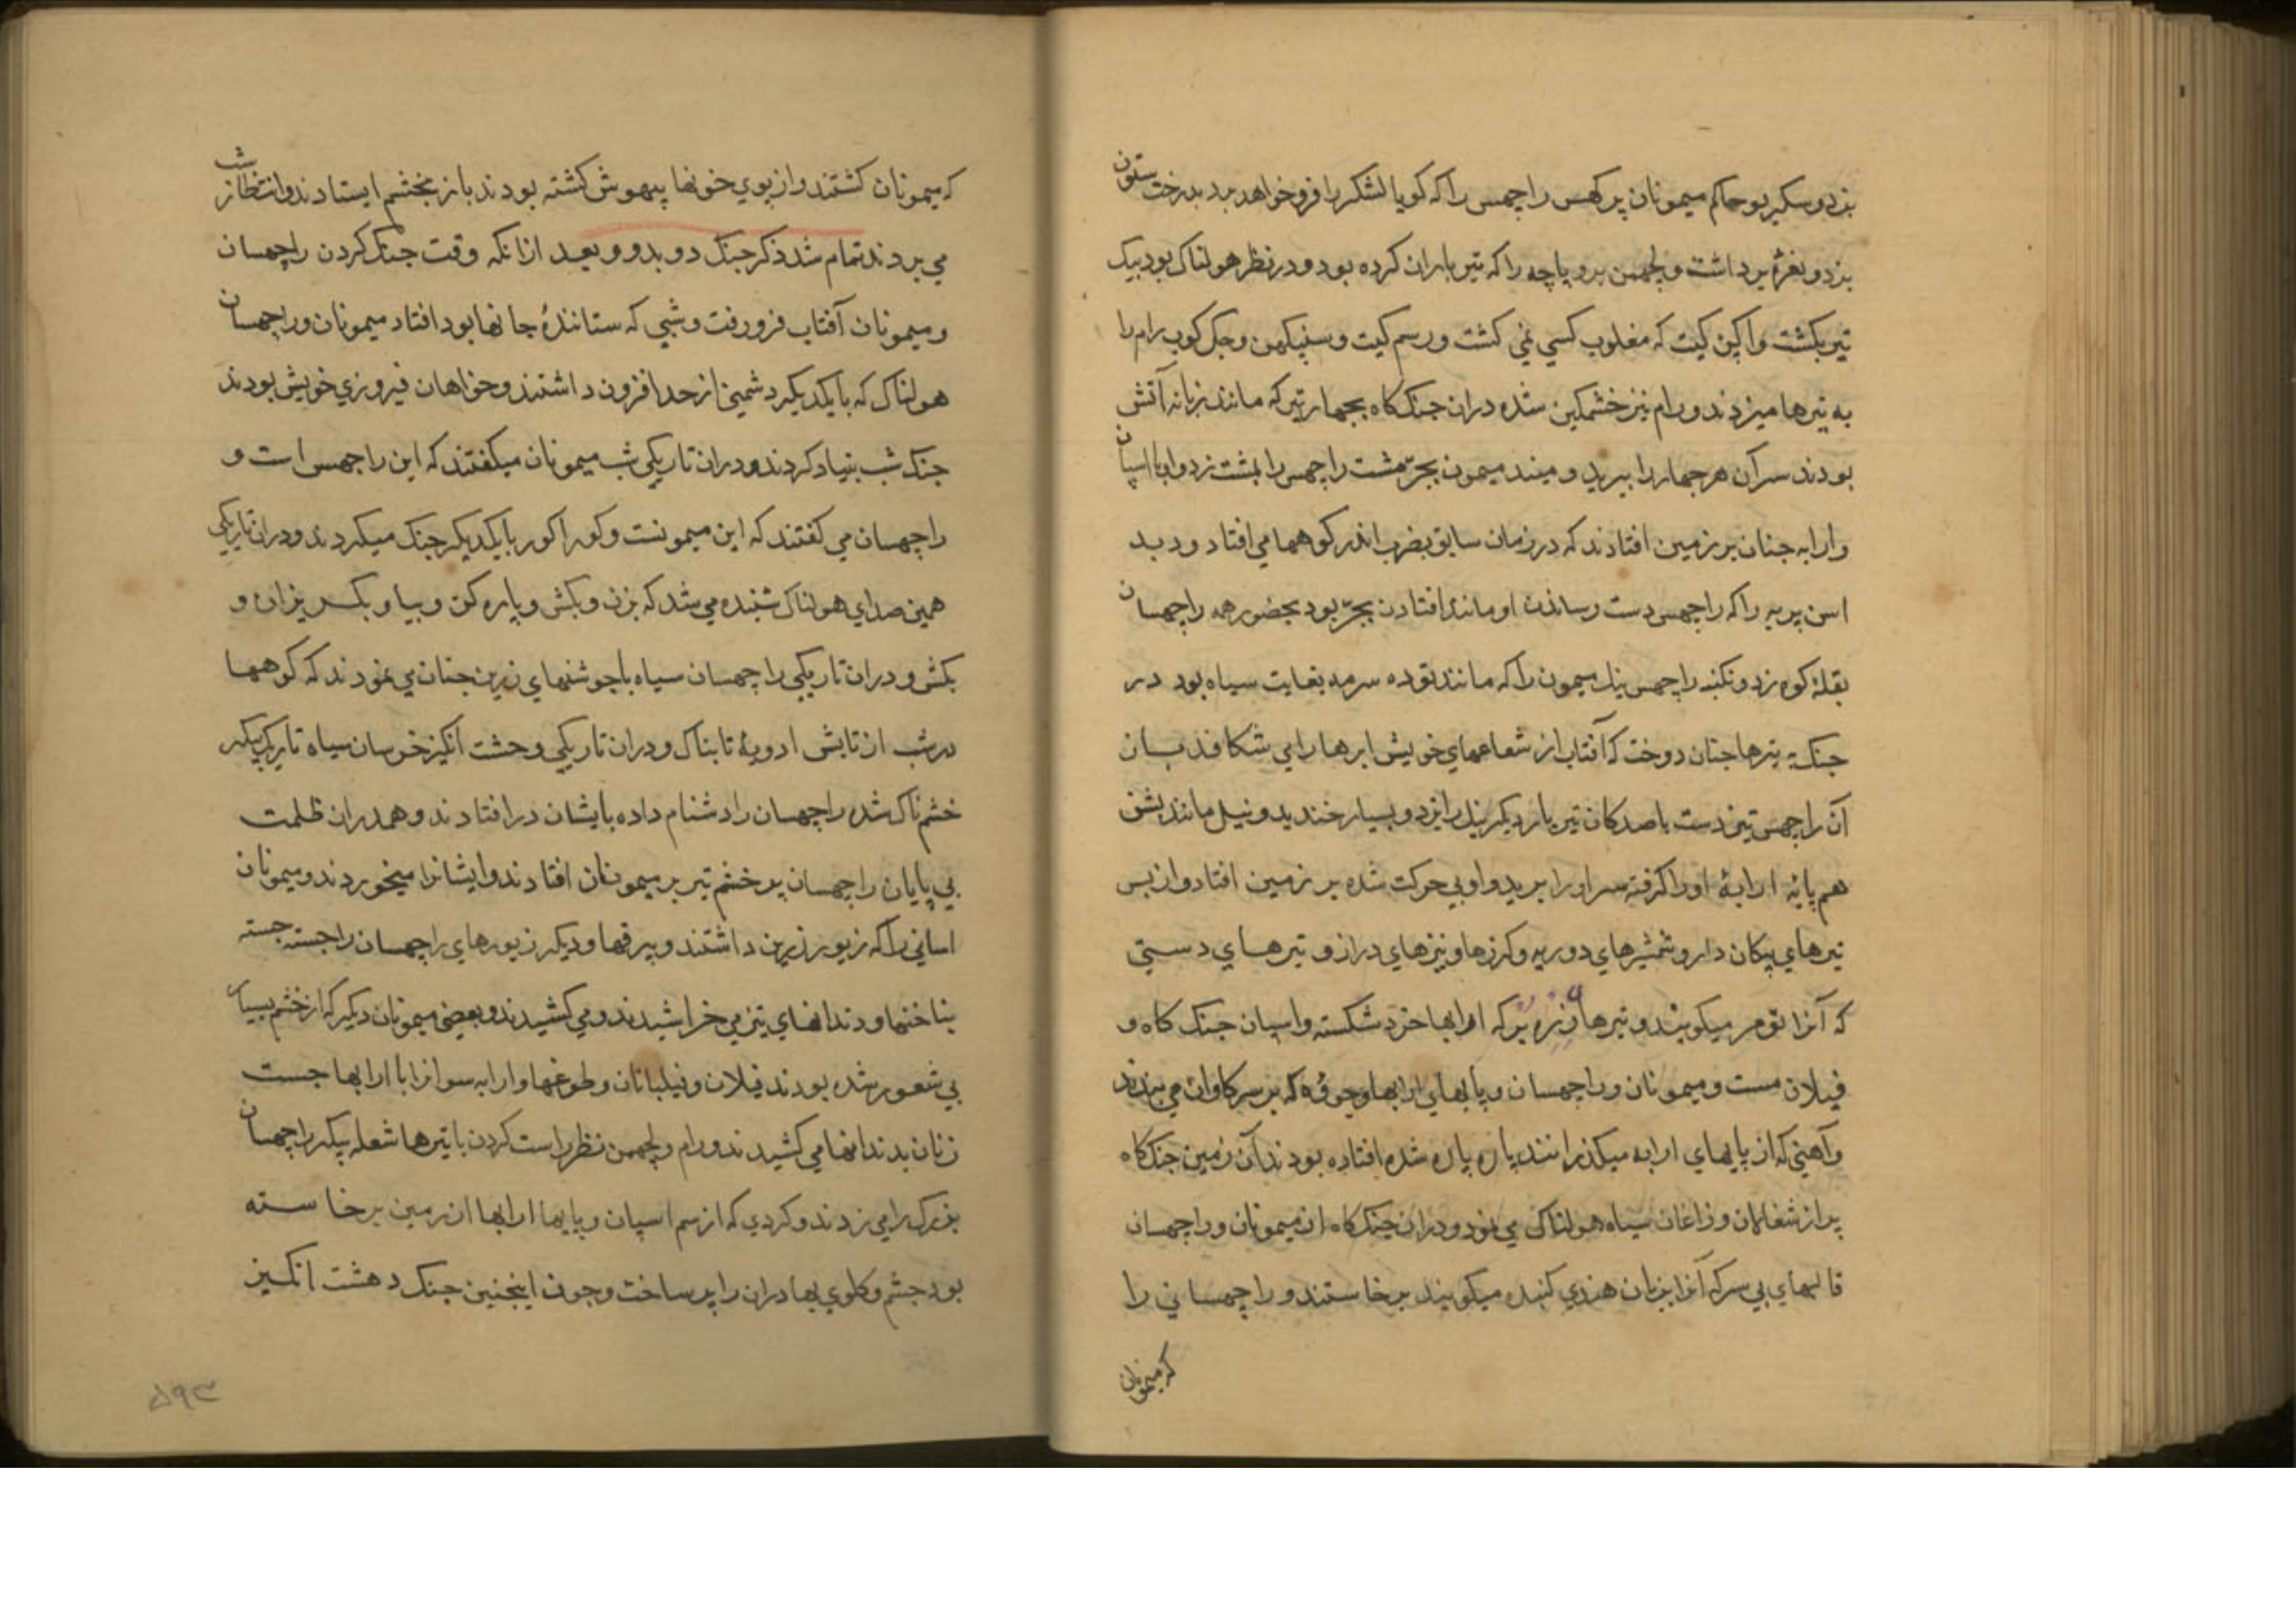 بزد و سکریو حاکم میمونان پرکهس راچهس را که کویا لشکر را فرو خواهد برد بدرخت ستون
بزد و نعرهٔ برداشت و لچهمن بروپاچه را که تیر باران کرده بود و در نظر هولناک بود بیک
تیر بکشت و اکین کیت که مغلوب کسی نمی کشت و رسم کیت و سنپکهن و جک کوب رام را
به تیرها میزدند و رام نیز خشمکین شده دران جنک کاه بچهار تیر که مانند زبانه آتش
بودند سر آن هر چهار را ببرید و میند میمون بجرّمشت راچهس را بمشت زد و او با اسپان
و ارابه چنان بر زمین افتادند که در زمان سابق بضرب اندر کوهها می افتاد و دبد
اسن پربه را که راچهس دست رساندن او مانند افتادن بجرّ بود بحضور همه راچهسان
بقلهٔ کوه زد و نکنبه راچهس نیل میمون را که مانند توده سرمه بغایت سیاه بود در
جنک به تیرها چنان دوخت که آفتاب از شعاعهای خویش ابرها را بی شکافد بسان
آن راچهس تیز دست با صد کان تیر بار دیکر نیل را بزد و بسیار خندید و نیل مانند بشن
هم پایهٔ ارابهٔ او را کرفته سر او را برید و او بی حرکت شده بر زمین افتاد و از بس
تیرهای پیکان دار و شمشیرهای دو ریه و کرزها و نیزهای دراز و تیرهای دستی
که آنرا تومر میکویند و تیرها و زره بر که ارابها خرد شکسته و اسپان جنک کاه و
فیلان مست و میمونان و راچهسان و پایهای ارابها و جوڤه که بر سر کاوان می بندند
و آهنی که از پایهای ارابه میکذرانند پاره پاره شده افتاده بودند آن زمین جنک کاه
پر از شغالان و زاغان سیاه هولناک می نمود و دران جنک کاه ان میمونان و راچهسان
قالبهای بی سر که آنرا بزبان هندی کبنده میکویند برخاستند و راچهسانی را
که میمونان
که میمونان کشتند و از بوی خونها بیهوش کشته بودند باز بخشم ایستادند و انتظار شب
می بردند تمام شد ذکر جنک دو بدو و بعد ازانکه وقت جنک کردن راچهسان
و میمونان آفتاب فرو رفت و شبی که ستانندهٔ جانها بود افتاد میمونان و راچهسان
هولناک که با یکدیکر دشمنی از حد افزون داشتند و خواهان فیروزی خویش بودند
جنک شب بنیاد کردند و دران تاریکی شب میمونان میکفتند که این راچهس است و
راچهسان می کفتند که این میمونست و کوراکور با یکدیکر جنک میکردند و دران تاریکی
همین صدای هولناک شنیده می شد که بزن و بکش و پاره کن و بیا و بکریزان و
بکش و دران تاریکی راچهسان سیاه با جوشنهای زرین چنان می نمودند که کوهها
در شب از تابش ادویهٔ تابناک و دران تاریکی وحشت انکیز خرسان سیاه تاریک پیکر
خشمناک شده راچهسان را دشنام داده بایشان در افتادند و همدران ظلمت
بی پایان راچهسان پر خشم تیر بر میمونان افتادند و ایشانرا میخوردند و میمونان
اسپانی را که زیور زرین داشتند و بیرقها و دیکر زیورهای راچهسان را جسته جسته
بناخنها و دندانهای تیز می خراشیدند و می کشیدند و بعضی میمونان دیکر که از خشم بسیار
بی شعور شده بودند فیلان و فیلبانان و طوغها و ارابه سوارانرا با ارابها جست
زنان بدندانها می کشیدند و رام و لچهمن نظر راست کردن با تیرها شعله پیکر راچهسان
بزرک را می زدند و کردی که از سم اسپان و پایها ارابها از زمین برخاسته
بود چشم و کلوی بهادران را پر ساخت و چون اینچنین جنک دهشت انکیز
۵۹۳